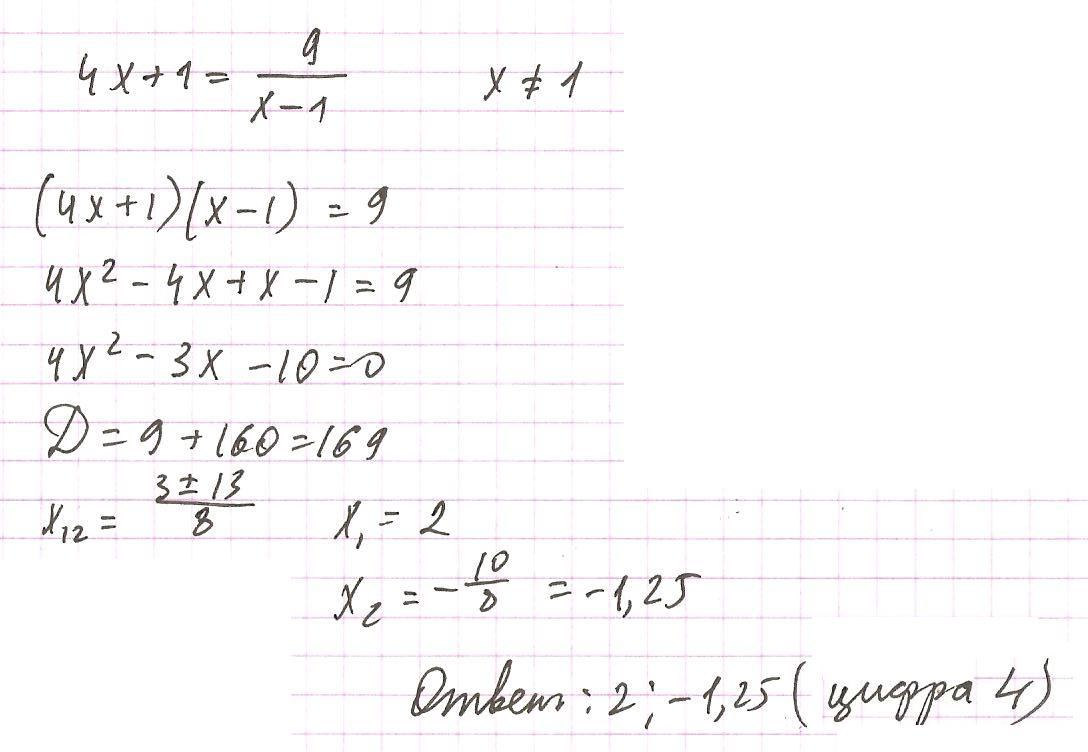 4x+1= 9/(x−1) x ≠ 1
(4x+1)(x−1) = 9
4x² − 4x + x − 1 = 9
4x² − 3x − 10 = 0
D = 9 + 160 = 169
x₁₂ = (3 ± 13)/8 x₁ = 2
x₂ = −10/8 = −1,25
Ответ: 2; −1,25 (цифра 4)